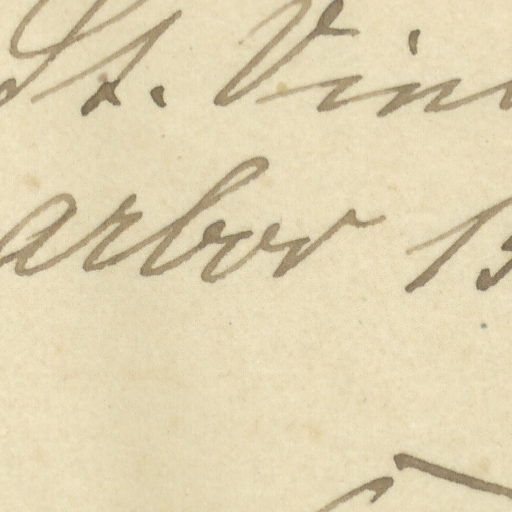 St. Vin
arbor 1